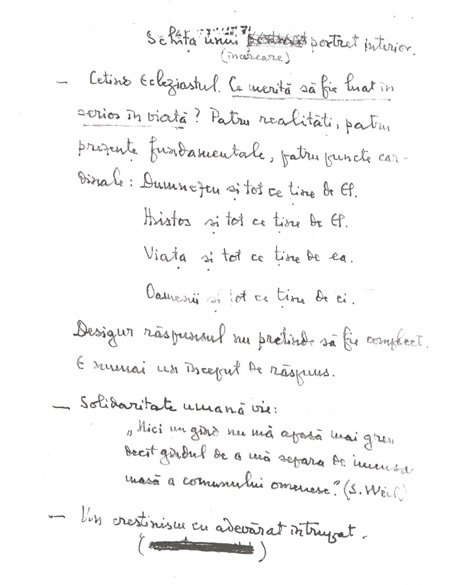 Schița unui portret interior.
(încercare)
— Citind Ecleziastul. Ce merită să fie luat în
serios în viață? Patru realități, patru
prezențe fundamentale, patru puncte car-
dinale: Dumnezeu și tot ce ține de El.
Hristos și tot ce ține de El.
Viața și tot ce ține de ea.
Oamenii și tot ce ține de ei.
Desigur răspunsul nu pretinde să fie complect.
E numai un început de răspuns.
— Solidaritate umană vie:
„Nici un gând nu mă apasă mai greu
decât gândul de a mă separa de imensa
masă a comunului omenesc." (S. Weil)
— Un creștinism cu adevărat întrupat.